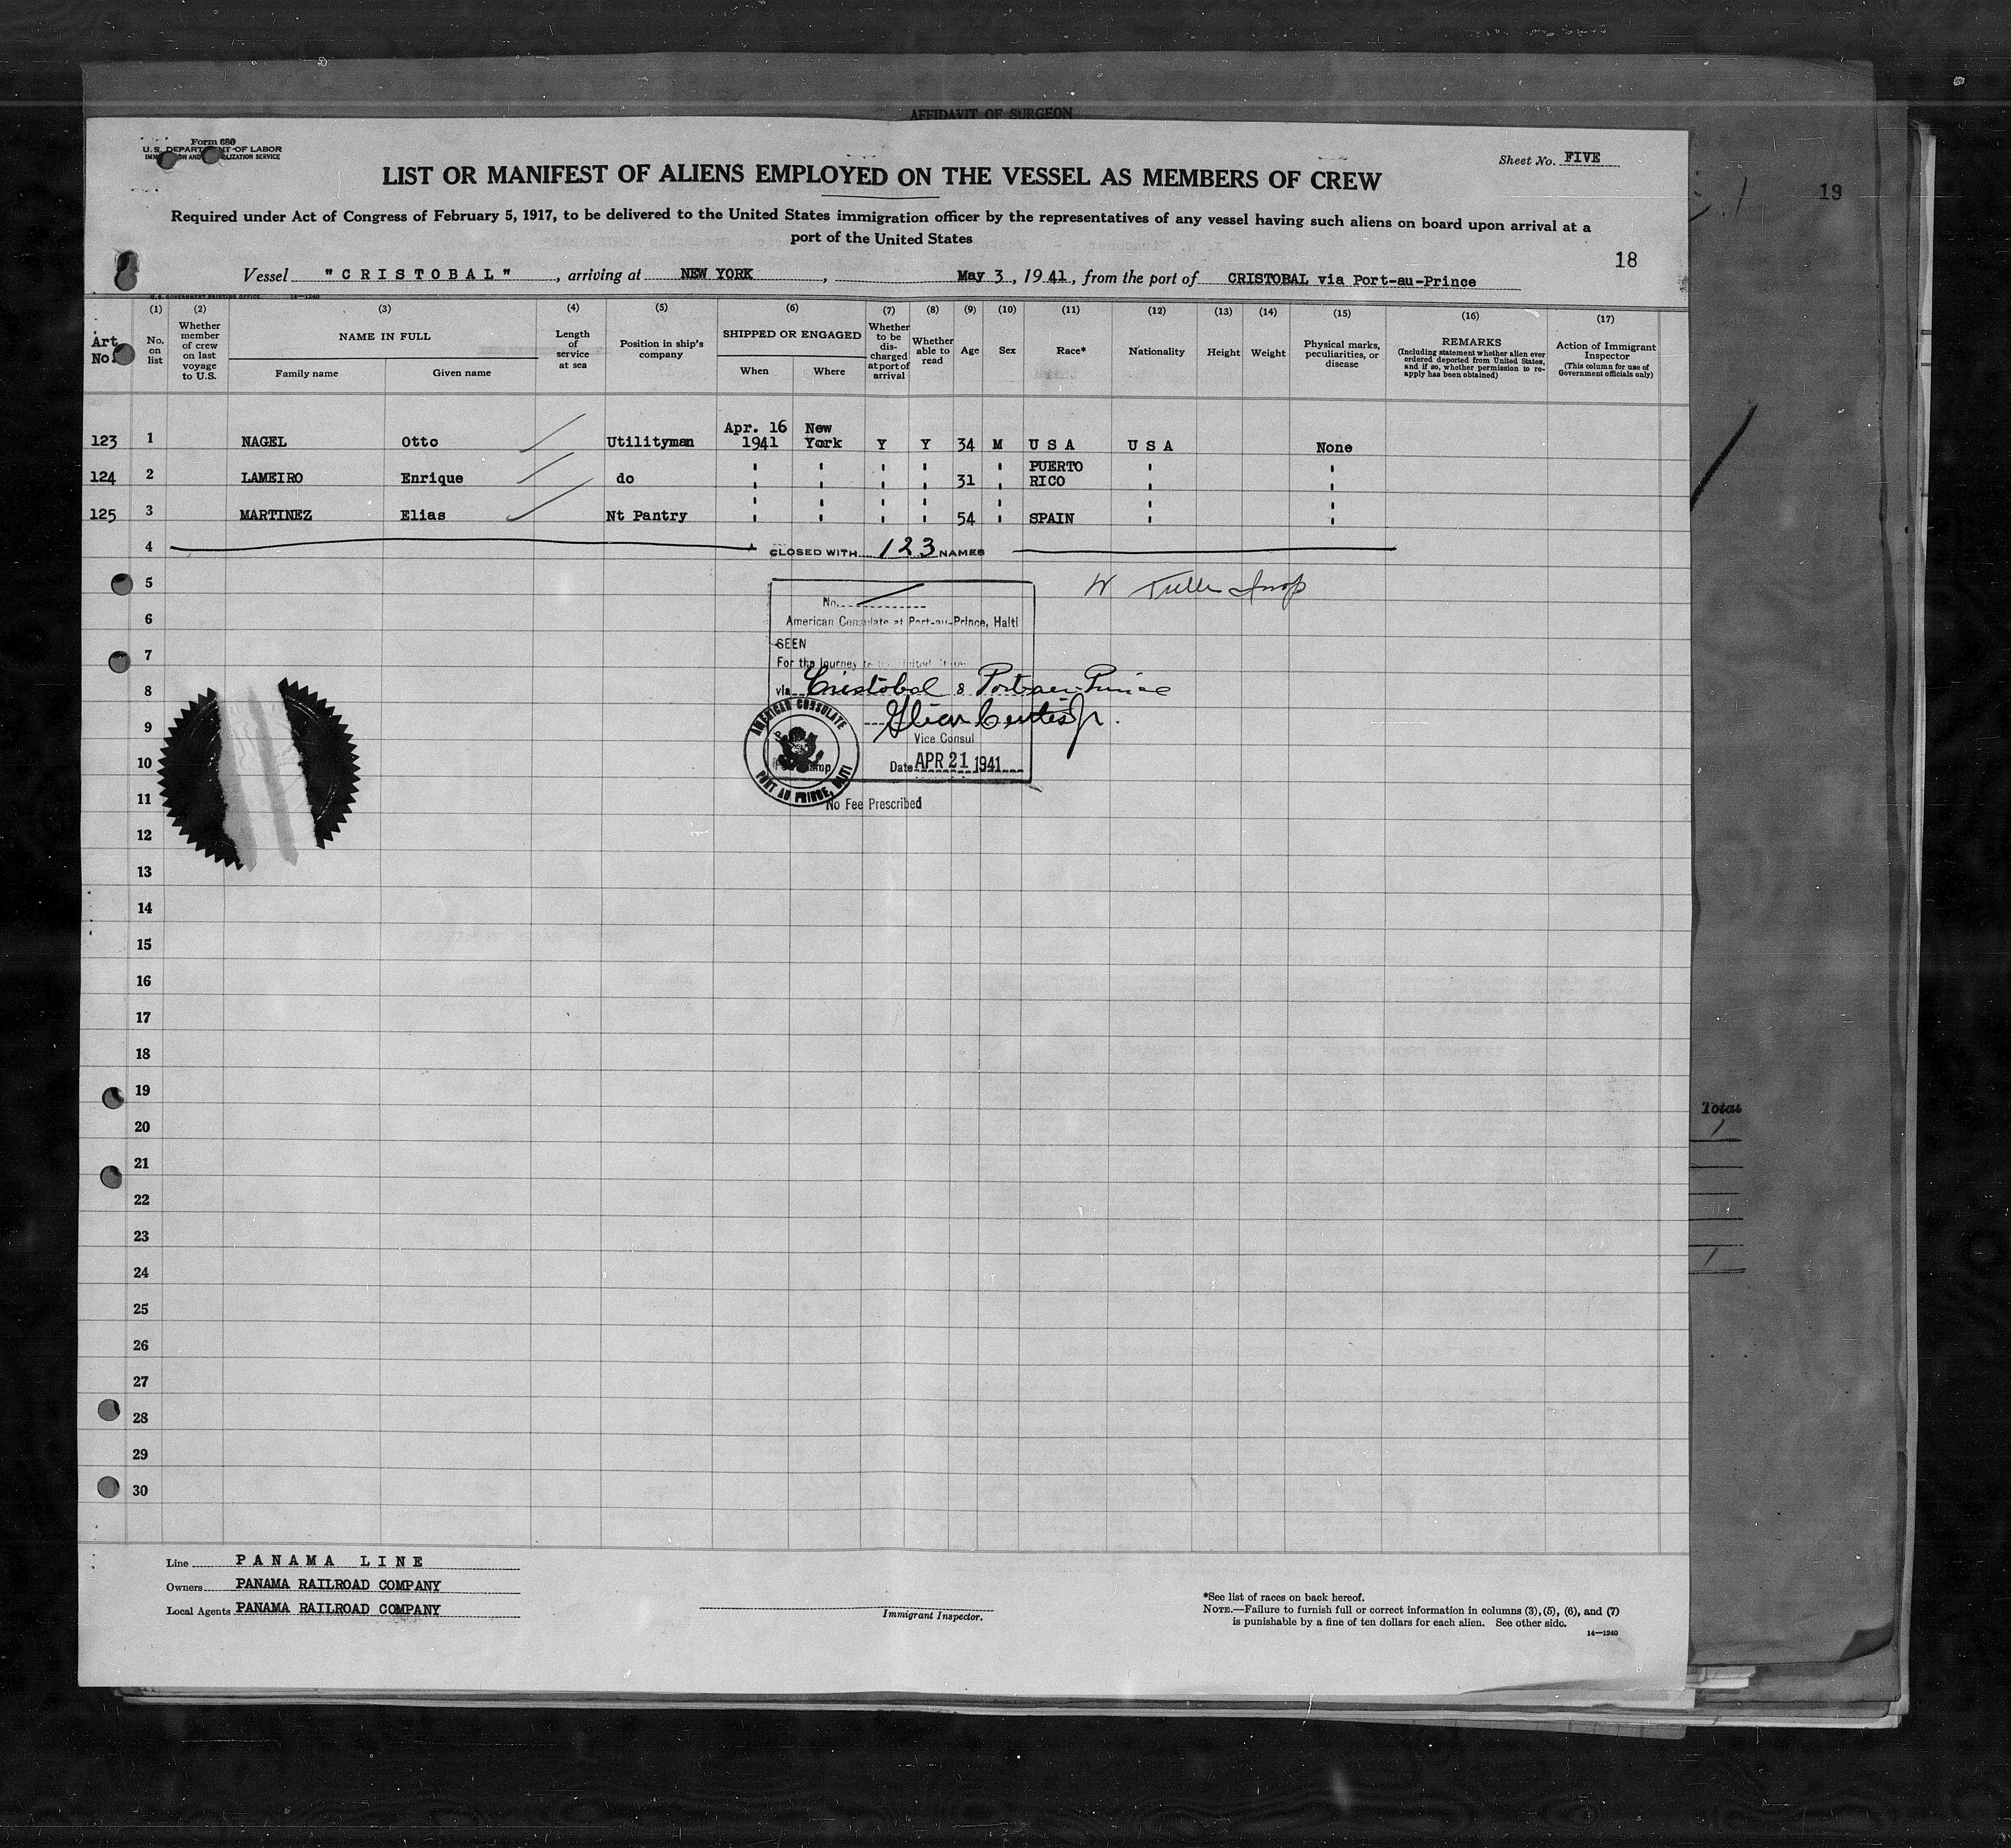 AFFIDAVIT OF SURGEON
Form 680
U. S. DEPARTMENT OF LABOR
IMMIGRATION AND NATURALIZATION SERVICE
Sheet No. FIVE
LIST OR MANIFEST OF ALIENS EMPLOYED ON THE VESSEL AS MEMBERS OF CREW
Required under Act of Congress of February 5, 1917, to be delivered to the United States immigration officer by the representatives of any vessel having such aliens on board upon arrival at a
port of the United States
19
18
Vessel "CRISTOBAL", arriving at NEW YORK, May 3, 1941, from the port of CRISTOBAL via Port-au-Prince
U.S. GOVERNMENT PRINTING OFFICE 14—1240
Art No. (1) No. on list (2) Whether member of crew on last voyage to U.S. (3) NAME IN FULL Family name Given name (4) Length of service at sea (5) Position in ship's company (6) SHIPPED OR ENGAGED When Where (7) Whether to be discharged at port of arrival (8) Whether able to read (9) Age (10) Sex (11) Race* (12) Nationality (13) Height (14) Weight (15) Physical marks, peculiarities, or disease (16) REMARKS (Including statement whether alien ever ordered deported from United States, and if so, whether permission to reapply has been obtained) (17) Action of Immigrant Inspector (This column for use of Government officials only)
123 1 NAGEL Otto Utilityman Apr. 16 1941 New York Y Y 34 M U S A U S A None
124 2 LAMEIRO Enrique do " " " " 31 " PUERTO RICO " "
125 3 MARTINEZ Elias Nt Pantry " " " " 54 " SPAIN " "
4 CLOSED WITH 123 NAMES
5
No.
6
American Consulate at Port-au-Prince, Haiti
SEEN
7
For the journey to the United States
8
via Cristobal & Port au Prince
9
Vice Consul
AMERICAN CONSULATE
PORT AU PRINCE, HAITI
10
Date APR 21 1941
11
No Fee Prescribed
12
13
14
15
16
17
18
19
20
21
22
23
24
25
26
27
28
29
30
Total
1
1
Line PANAMA LINE
Owners PANAMA RAILROAD COMPANY
Local Agents PANAMA RAILROAD COMPANY
Immigrant Inspector.
*See list of races on back hereof.
NOTE.—Failure to furnish full or correct information in columns (3), (5), (6), and (7)
is punishable by a fine of ten dollars for each alien. See other side.
14—1240